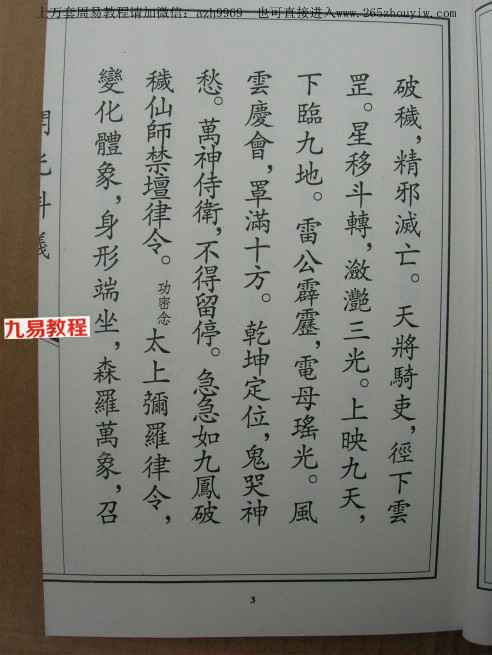 上万套周易教程请加微信：azh9969 也可直接进入www.265zhouyiw.com
破穢，精邪滅亡。天將騎吏，徑下雲
罡。星移斗轉，瀲灔三光。上映九天，
下臨九地。雷公霹靂，電母瑤光。風
雲慶會，罩滿十方。乾坤定位，鬼哭神
愁。萬神侍衛，不得留停。急急如九鳳破
穢仙師禁壇律令。功密念太上彌羅律令，
變化體象，身形端坐，森羅萬象，召
開光科儀
九易教程
3